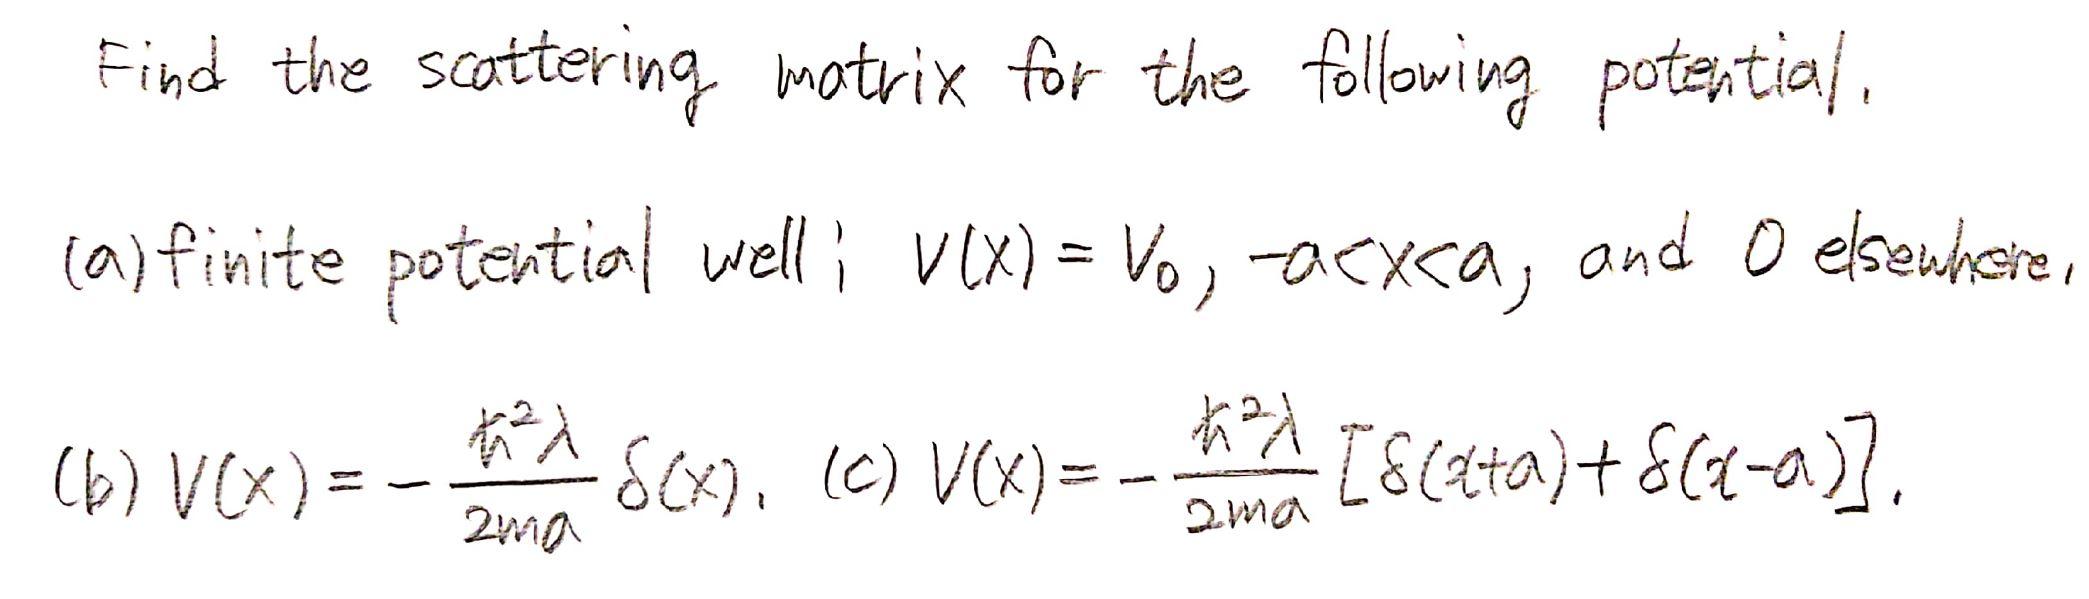 Find the scattering matrix for the following potential.
(a) finite potential well; V(x) = V₀, -a<x<a, and 0 elsewhere.
(b) V(x) = - ħ²λ/2ma δ(x). (c) V(x) = - ħ²λ/2ma [δ(x+a) + δ(x-a)].